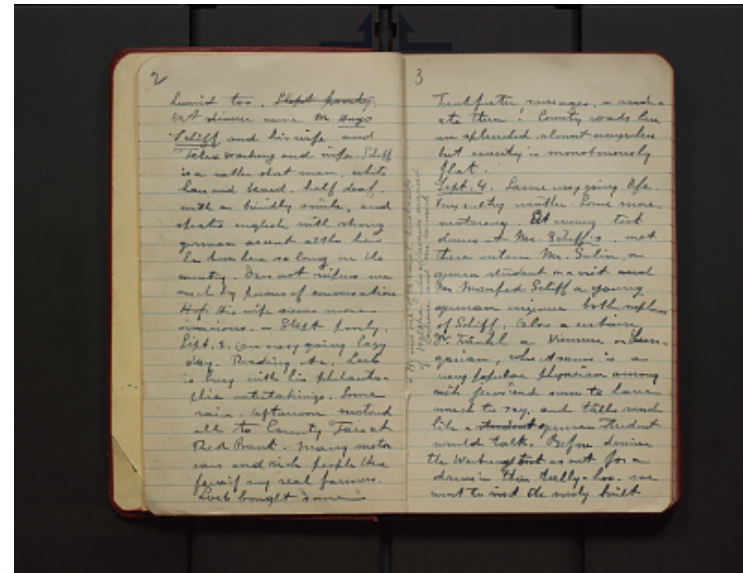 2
humid too. Slept poorly.
At dinner came Mr Hugo
Schiff and his wife and
Felix Warburg and wife. Schiff
is a rather short man, white
hair and beard, half deaf
with a kindly smile, and
speaks english with strong
german accent altho he
has been here so long in the
country. Does not impress me
much by power of conversation
His wife seems more
vivacious. — Slept poorly.
Sept. 3. An easy going lazy
day. Reading etc. Loeb
is busy with his philanthro-
phic undertakings. Some
rain. Afternoon motored
all to County Fair at
Red Bank. Many motor
cars and rich people there
few if any real farmers.
Loeb bought some
3
Frankfurter sausages, — and
ate them! County roads here
are splendid almost everywhere
but country is monotonously
flat.
Sept. 4. Same easy going life.
Very sultry weather. Some more
motoring. At evening took
dinner at Mr. Schiff's. met
there Mr. a
german student on a visit and
Mr Manfred Schiff a young
german engineer both nephews
of Schiff. Also a certain
Dr. a Viennese or Hun-
garian, who it seems is a
very popular physician among
rich jews and seems to have
much to say, and talks much
like a student german student
would talk. Before dinner
the Warburgs took us out for a
drive in their tally-ho. we
went to visit the newly built